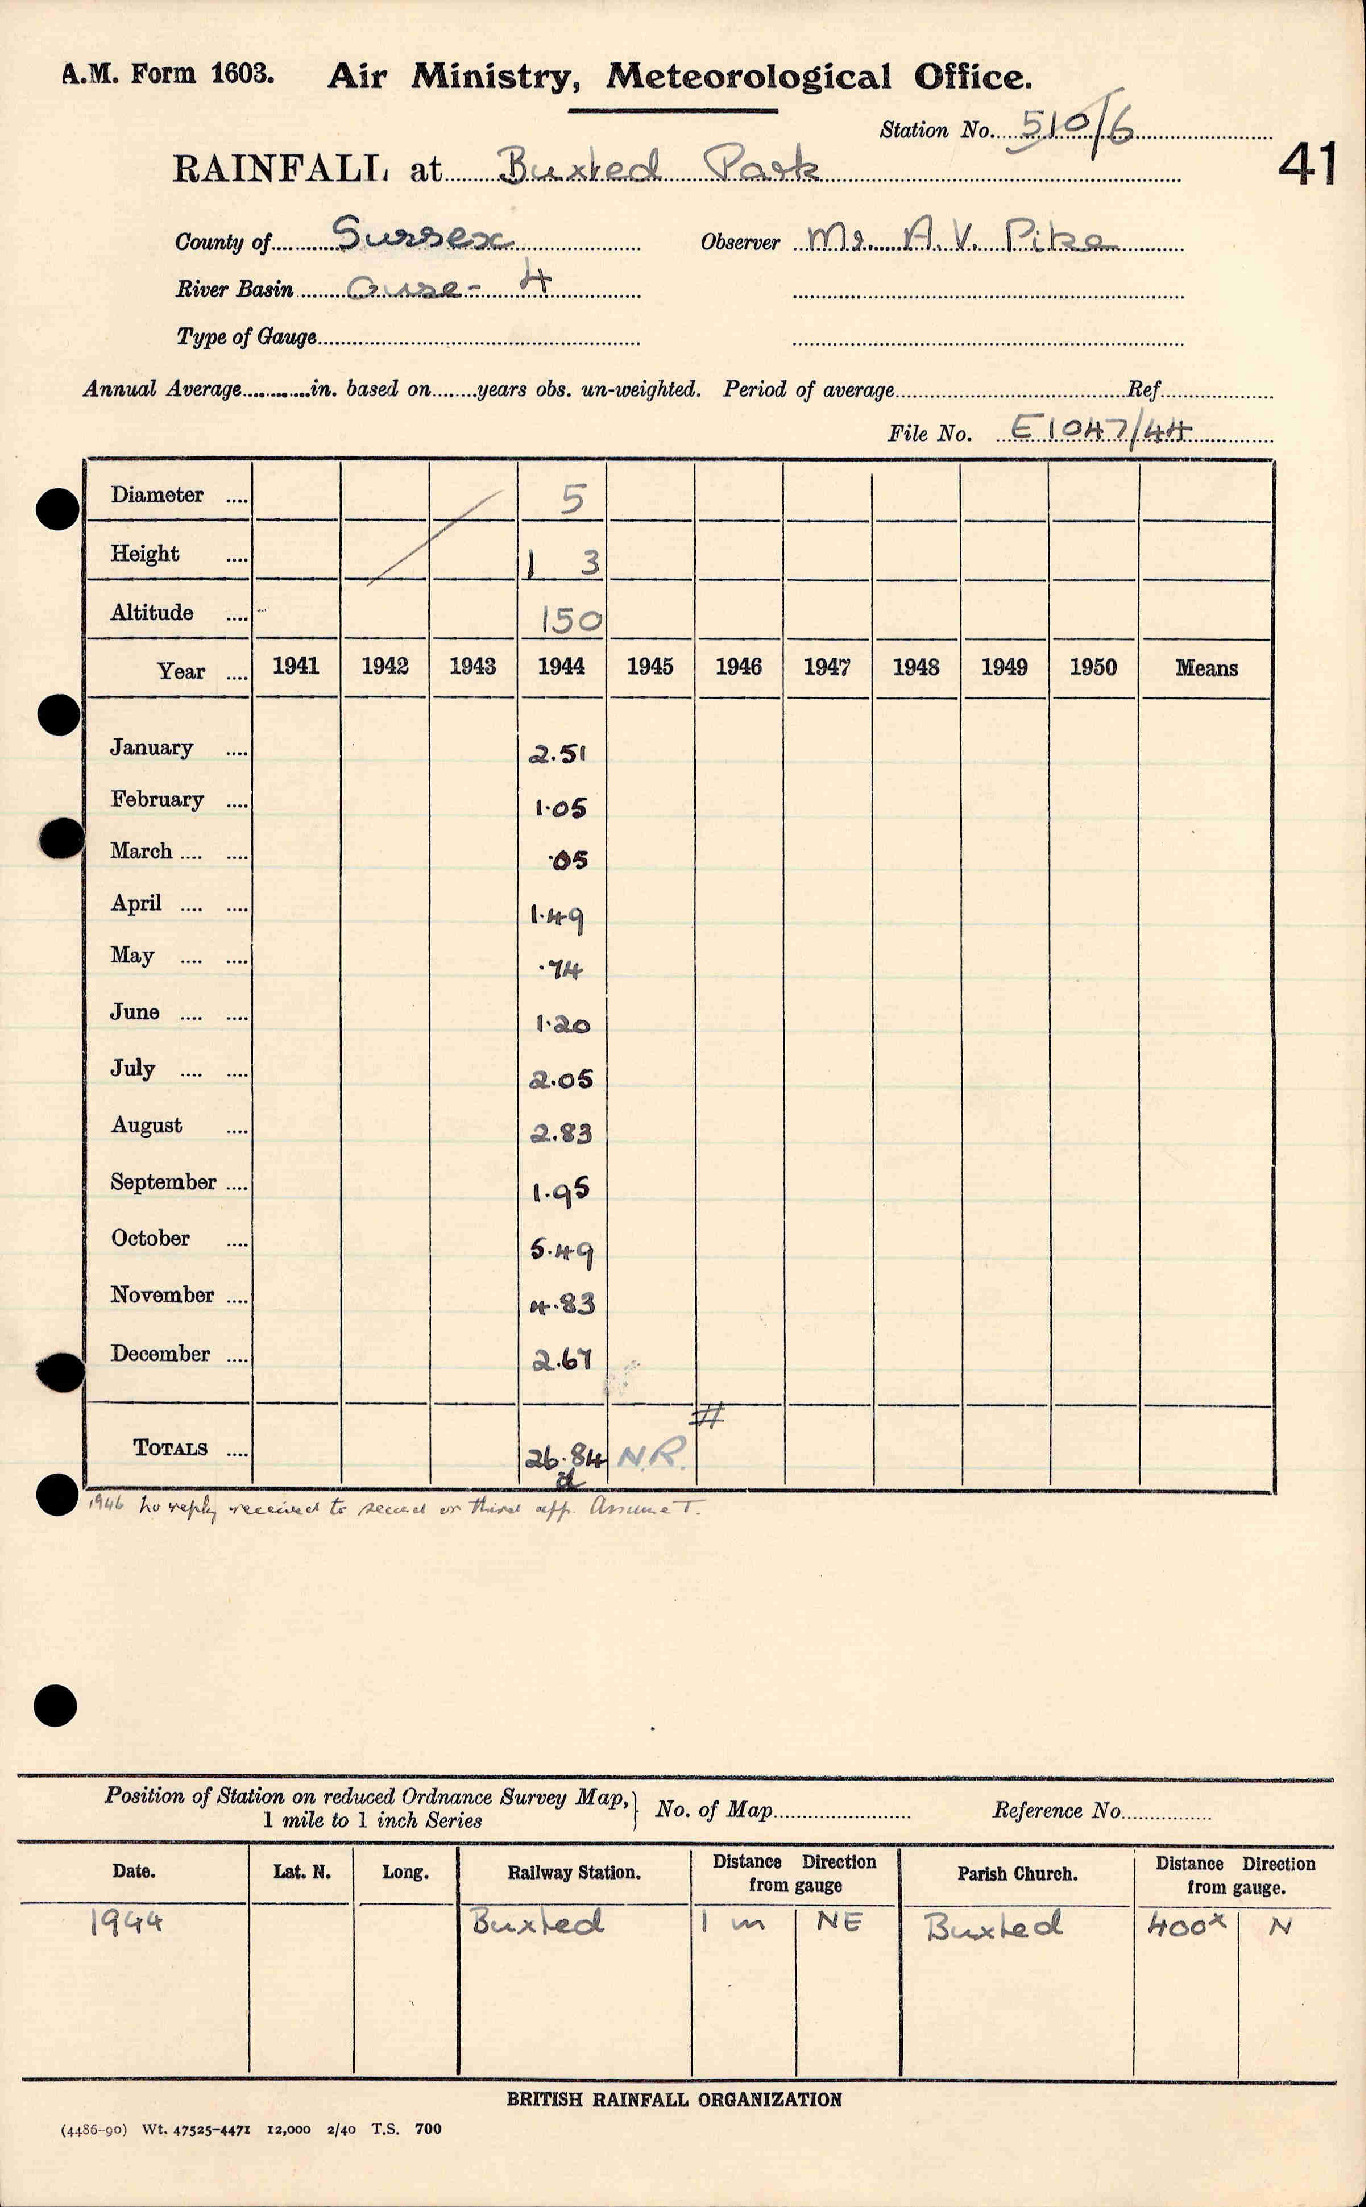 A.M. Form 1603. Air Ministry, Meteorological Office.
Station No. 510/6
41
RAINFALL at Buxted Park
County of Sussex Observer Mr. A.V. Pike
River Basin Ouse - 4
Type of Gauge
Annual Average in. based on years obs. un-weighted. Period of average Ref
File No. E1047/44
Diameter .... 5
Height .... 1 3
Altitude .... 150
Year .... 1941 1942 1943 1944 1945 1946 1947 1948 1949 1950 Means
January .... 2.51
February .... 1.05
March .... .... .05
April .... .... 1.49
May .... .... .74
June .... .... 1.20
July .... .... 2.05
August .... 2.83
September .... 1.95
October .... 5.49
November .... 4.83
December .... 2.67
TOTALS .... 26.84 N.R.
1946 no reply received to second or third app. Assume T.
Position of Station on reduced Ordnance Survey Map, No. of Map Reference No.
1 mile to 1 inch Series
Date. Lat. N. Long. Railway Station. Distance Direction from gauge Parish Church. Distance Direction from gauge.
1944 Buxted 1 m NE Buxted 400x N
BRITISH RAINFALL ORGANIZATION
(4486-90) Wt. 47525-4471 12,000 2/40 T.S. 700